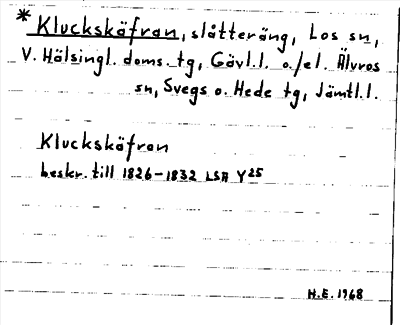 * Kluckskäfran, slåtteräng, Los sn,
V. Hälsingl. doms. tg, Gävl.l. o./el. Älvros
sn, Svegs o. Hede tg, Jämtl.l.
Kluckskäfran
beskr. till 1826-1832 LSA Y25
H.E. 1968